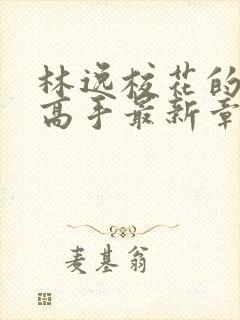 林逸校花的
高手最新章
麦基翁